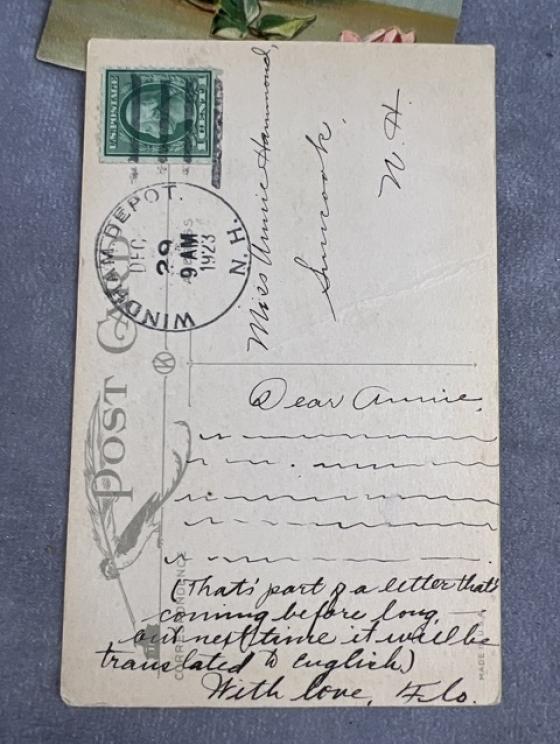 U.S. POSTAGE
1 CENT 1
WINDHAM DEPOT.
DEC
29
9 AM
1923
N.H.
POST CARD
ADDRESS
Miss Annie Hammond,
Suncook,
N. H.
K
CORRESPONDENCE
MADE IN U.S.A.
Dear Annie,
(That's part of a letter that's
coming before long
but next time it will be
translated to english)
With love, Flo.